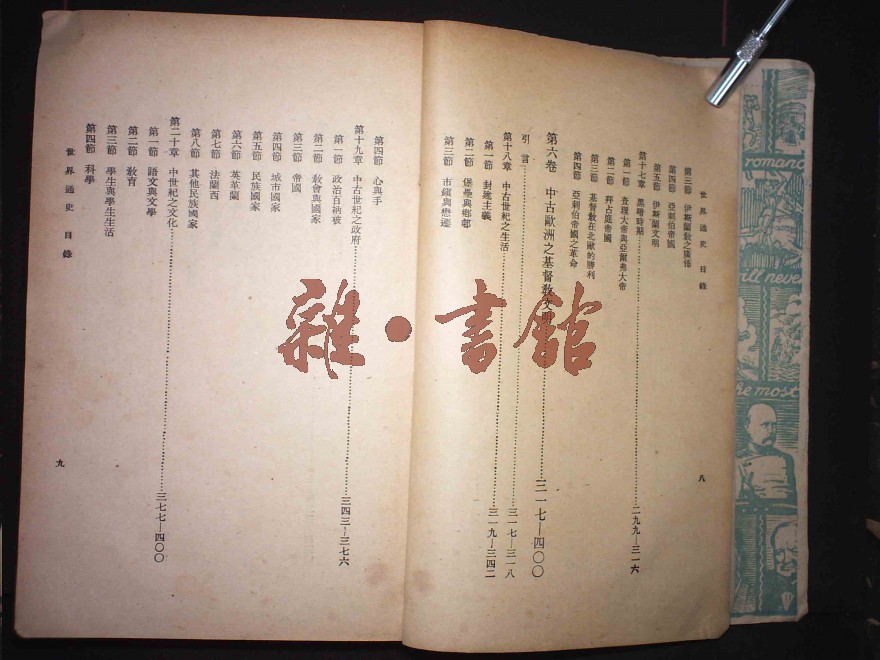 世界通史 目錄
第三節 伊斯蘭教之廣佈
第四節 亞剌伯帝國
第五節 伊斯蘭文明
第十七章 黑暗時期 二九九—三一六
第一節 查理大帝與亞爾弗大帝
第二節 拜占庭帝國
第三節 基督教在北歐的勝利
第四節 亞剌伯帝國之革命
第六卷 中古歐洲之基督教文明 三一七—四〇〇
引言 三一七—三一八
第十八章 中古世紀之生活 三一九—三四二
第一節 封建主義
第二節 堡壘與鄉邨
第三節 市鎮與懋遷
八
第四節 心與手
第十九章 中古世紀之政府 三四三—三七六
第一節 政治百衲被
第二節 教會與國家
第三節 帝國
第四節 城市國家
第五節 民族國家
第六節 英革蘭
第七節 法蘭西
第八節 其他民族國家
第二十章 中世紀之文化 三七七—四〇〇
第一節 語文與文學
第二節 教育
第三節 學生與學生生活
第四節 科學
世界通史 目錄
九
雜·書館
romanc
ill neve
he most